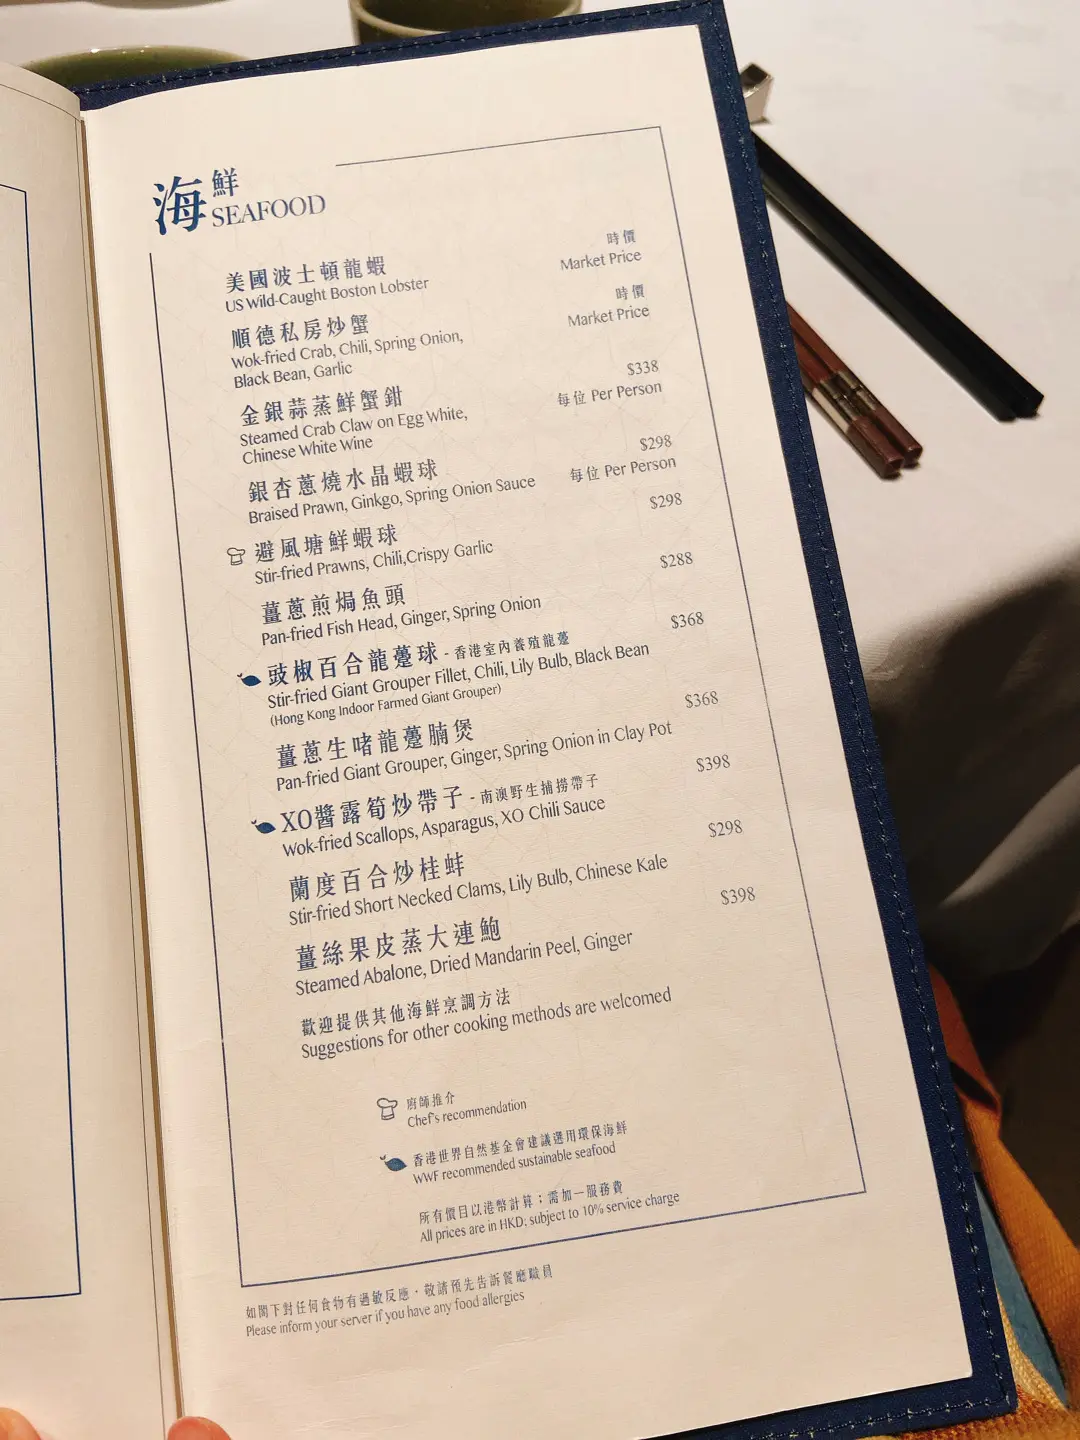 海鮮
SEAFOOD
美國波士頓龍蝦
US Wild-Caught Boston Lobster
時價
Market Price
順德私房炒蟹
Wok-fried Crab, Chili, Spring Onion,
Black Bean, Garlic
時價
Market Price
金銀蒜蒸鮮蟹鉗
Steamed Crab Claw on Egg White,
Chinese White Wine
$338
每位 Per Person
銀杏蔥燒水晶蝦球
Braised Prawn, Ginkgo, Spring Onion Sauce
$298
每位 Per Person
避風塘鮮蝦球
Stir-fried Prawns, Chili,Crispy Garlic
$298
薑蔥煎焗魚頭
Pan-fried Fish Head, Ginger, Spring Onion
$288
豉椒百合龍躉球 - 香港室內養殖龍躉
Stir-fried Giant Grouper Fillet, Chili, Lily Bulb, Black Bean
(Hong Kong Indoor Farmed Giant Grouper)
$368
薑蔥生啫龍躉腩煲
Pan-fried Giant Grouper, Ginger, Spring Onion in Clay Pot
$368
XO醬露筍炒帶子 - 南澳野生捕撈帶子
Wok-fried Scallops, Asparagus, XO Chili Sauce
$398
蘭度百合炒桂蚌
Stir-fried Short Necked Clams, Lily Bulb, Chinese Kale
$298
薑絲果皮蒸大連鮑
Steamed Abalone, Dried Mandarin Peel, Ginger
$398
歡迎提供其他海鮮烹調方法
Suggestions for other cooking methods are welcomed
廚師推介
Chef's recommendation
香港世界自然基金會建議選用環保海鮮
WWF recommended sustainable seafood
所有價目以港幣計算；需加一服務費
All prices are in HKD; subject to 10% service charge
如閣下對任何食物有過敏反應，敬請預先告訴餐廳職員
Please inform your server if you have any food allergies